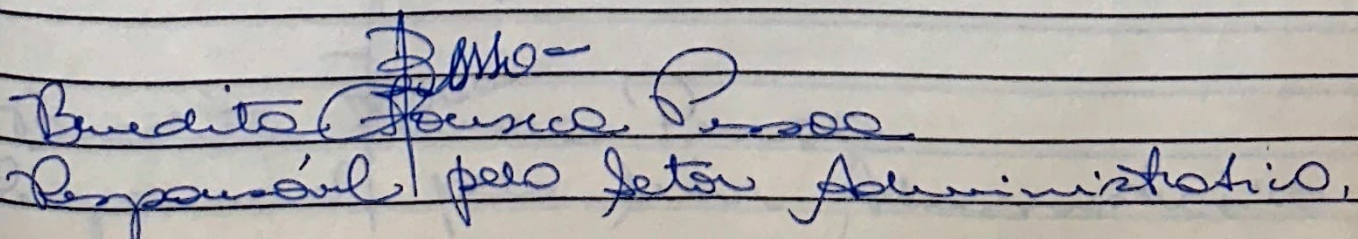 Benedita Fonseca Pessoa
Responsável pelo setor Administrativo.